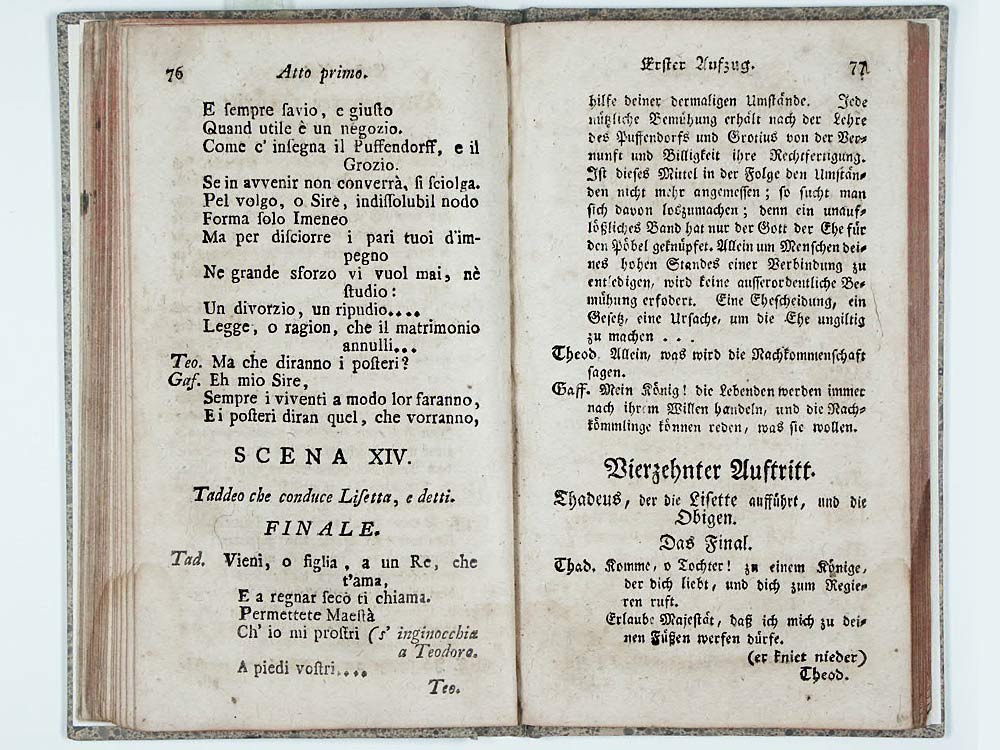 76 Atto primo.
E ſempre ſavio, e giuſto
Quand utile è un negozio.
Come c' inſegna il Puffendorff, e il
Grozio.
Se in avvenir non converrà, ſi ſciolga.
Pel volgo, o Sire, indiſſolubil nodo
Forma ſolo Imeneo
Ma per diſciorre i pari tuoi d'im-
pegno
Ne grande sforzo vi vuol mai, nè
ſtudio:
Un divorzio, un ripudio....
Legge, o ragion, che il matrimonio
annulli...
Teo. Ma che diranno i poſteri?
Gaf. Eh mio Sire,
Sempre i viventi a modo lor faranno,
E i poſteri diran quel, che vorranno,
SCENA XIV.
Taddeo che conduce Liſetta, e detti.
FINALE.
Tad. Vieni, o figlia, a un Re, che
t'ama,
E a regnar ſeco ti chiama.
Permettete Maeſtà
Ch' io mi proſtri (s' inginocchia
a Teodoro.
A piedi voſtri....
Teo.
Erſter Aufzug. 77
hilfe deiner dermaligen Umſtände. Jede
nützliche Bemühung erhält nach der Lehre
des Puffendorfs und Grotius von der Ver-
nunft und Billigkeit ihre Rechtfertigung.
Iſt dieſes Mittel in der Folge den Umſtän-
den nicht mehr angemeſſen; ſo ſucht man
ſich davon loszumachen; denn ein unauf-
lößliches Band hat nur der Gott der Ehe für
den Pöbel geknüpfet. Allein um Menſchen dei-
nes hohen Standes einer Verbindung zu
entledigen, wird keine auſſerordentliche Be-
mühung erfodert. Eine Eheſcheidung, ein
Geſetz, eine Urſache, um die Ehe ungiltig
zu machen . . .
Theod. Allein, was wird die Nachkommenſchaft
ſagen.
Gaff. Mein König! die Lebenden werden immer
nach ihrem Willen handeln, und die Nach-
kömmlinge können reden, was ſie wollen.
Vierzehnter Auftritt.
Thadeus, der die Liſette aufführt, und die
Obigen.
Das Final.
Thad. Komme, o Tochter! zu einem Könige,
der dich liebt, und dich zum Regie-
ren ruft.
Erlaube Majeſtät, daß ich mich zu dei-
nen Füßen werfen dürfe.
(er kniet nieder)
Theod.